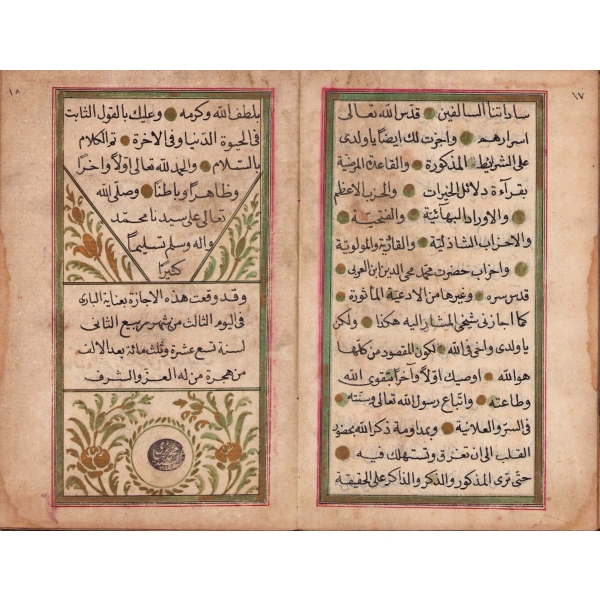 ١٧
ساداتنا السالفين قدس الله تعالى
اسرارهم واجزت لك ايضاً يا ولدى
على الشريطة المذكورة والقاعدة المرضية
بقراءة دلائل الخيرات والحزب الاعظم
والاوراد البهائية والفتحية
والاحزاب الشاذلية والقادرية والمولوية
واحزاب حضرت محمد محى الدين ابن العربى
قدس سره وغيرها من الادعية المأثورة
كما اجازنى شيخى المشار اليه هكذا ولكن
يا ولدى واخى فى الله لكون المقصود من كلها
هو الله اوصيك اولاً وآخراً بتقوى الله
وطاعته واتباع رسول الله تعالى وسنته
فى السر والعلانية وبمداومة ذكر الله بحضور
القلب الى ان تغرق وتستهلك فيه
حتى ترى المذكور والذكر والذاكر على الحقيقة
١٨
بلطف الله وكرمه وعليك بالقول الثابت
فى الحيوة الدنيا وفى الاخرة تم الكلام
بالسلام والحمد لله تعالى اولاً واخراً
وظاهراً وباطناً وصلى الله
تعالى على سيدنا محمد
واله وسلم تسليماً
كثيراً
وقد وقعت هذه الاجازة بعناية البارى
فى اليوم الثالث من شهور ربيع الثانى
لسنة تسع عشرة وثلث مائة بعد الالف
من هجرة من له العز والشرف